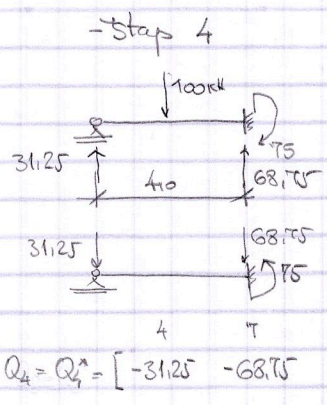 - Štap 4
100kN
31,25
75
4,0
68,75
31,25
68,75
75
4 7
Q₄ = Q₄* = [ -31,25 -68,75